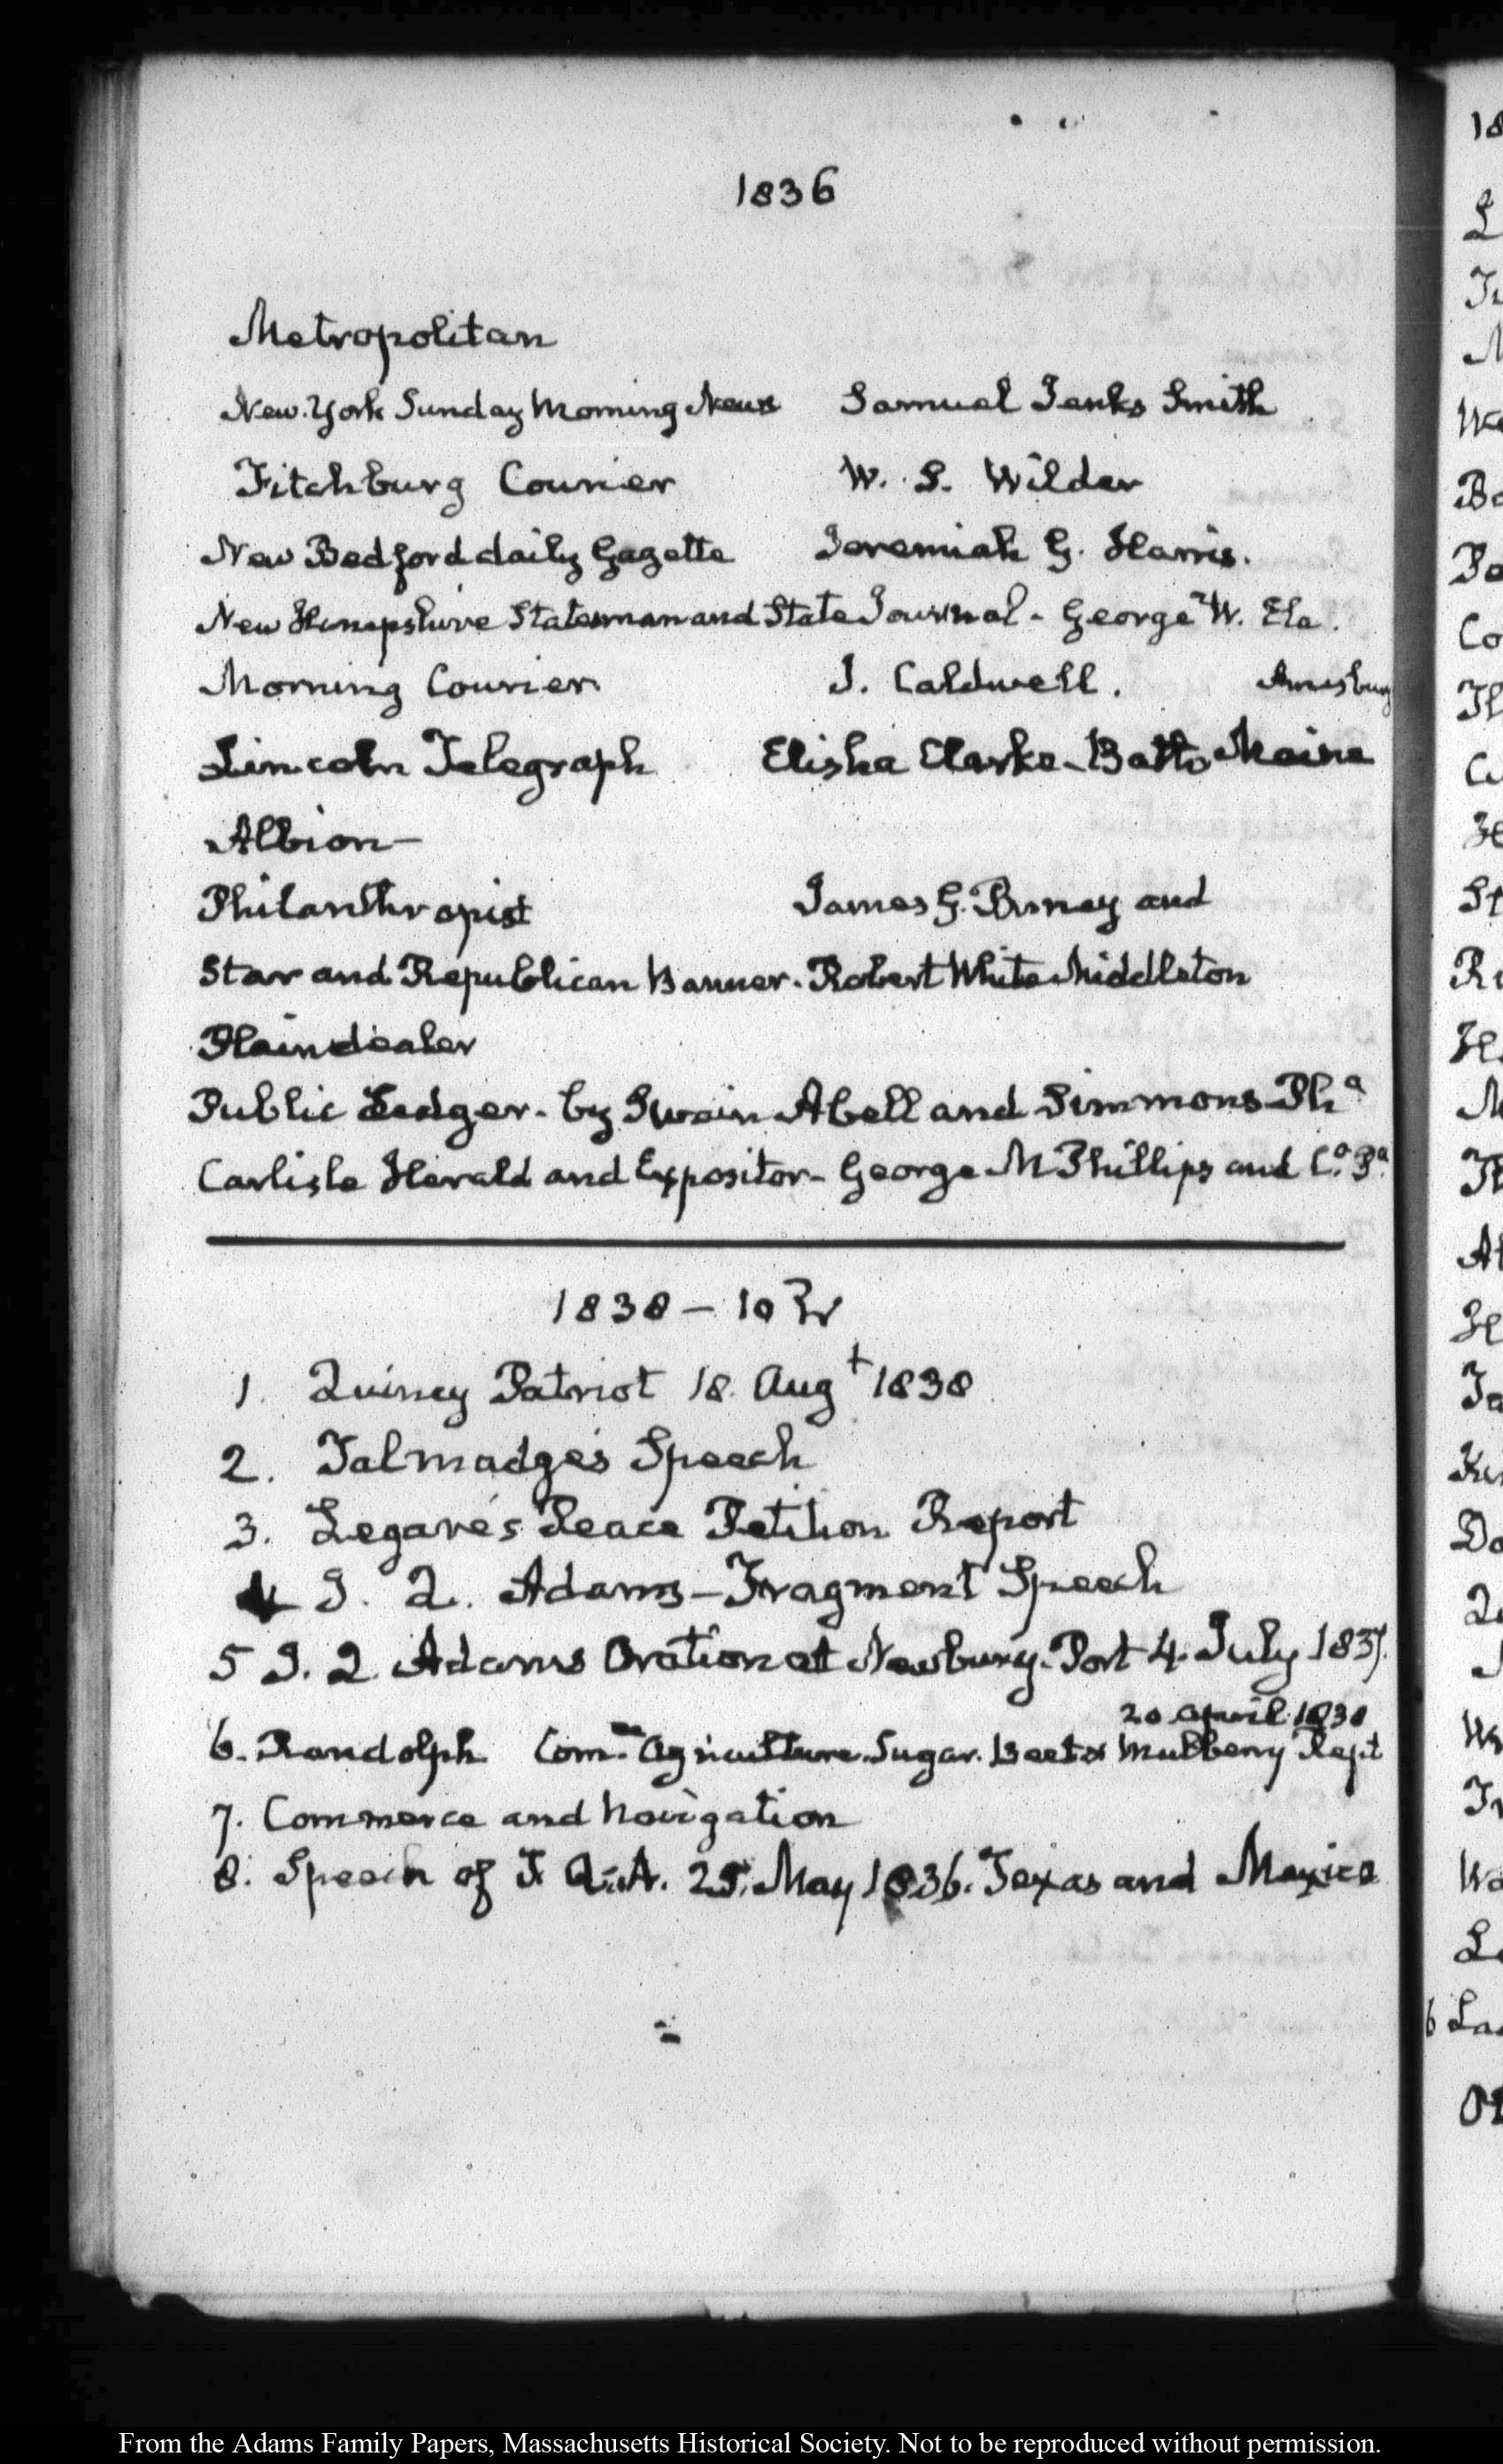 1836
Metropolitan
New York Sunday Morning News Samuel Jenks Smith
Fitchburg Courier W. S. Wilder
New Bedford daily Gazette Jeremiah G. Harris.
New Hampshire Statesman and State Journal - George W. Ela.
Morning Courier J. Caldwell. Amesbury
Lincoln Telegraph Elisha Clarke - Bath Maine
Albion—
Philanthropist James G. Birney and
Star and Republican Banner. Robert White Middleton
Plaindealer
Public Ledger - by Swain Abell and Simmons Phª
Carlisle Herald and Expositor - George M Phillips and Cº. Pª
1838 — 10
1. Quincy Patriot 18. Augt 1838
2. Talmadge's Speech
3. Legare's Peace Petition Report
4 J. Q. Adams — Fragment Speech
5 J. Q. Adams Oration at Newbury-Port 4. July 1837.
20 April 1838
6. Randolph Com.ee Agriculture. Sugar. Beets Mulberry Rept
7. Commerce and Navigation
8. Speech of J. Q. A. 25. May 1836. Texas and Mexico
From the Adams Family Papers, Massachusetts Historical Society. Not to be reproduced without permission.